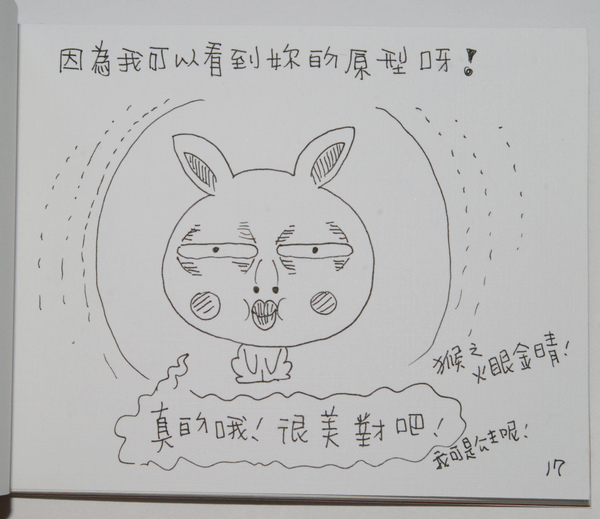 因為我可以看到妳的原型呀!
猴之
火眼金晴!
真的哦!很美對吧!
我可是公主呢!
17